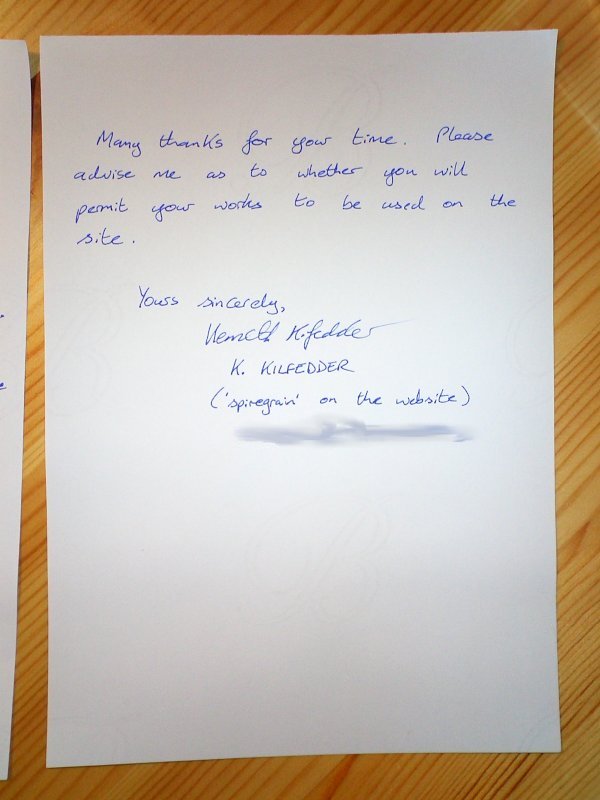 Many thanks for your time. Please
advise me as to whether you will
permit your works to be used on the
site.
Yours sincerely,
Kenneth Kilfedder
K. KILFEDDER
('spiregrain' on the website)